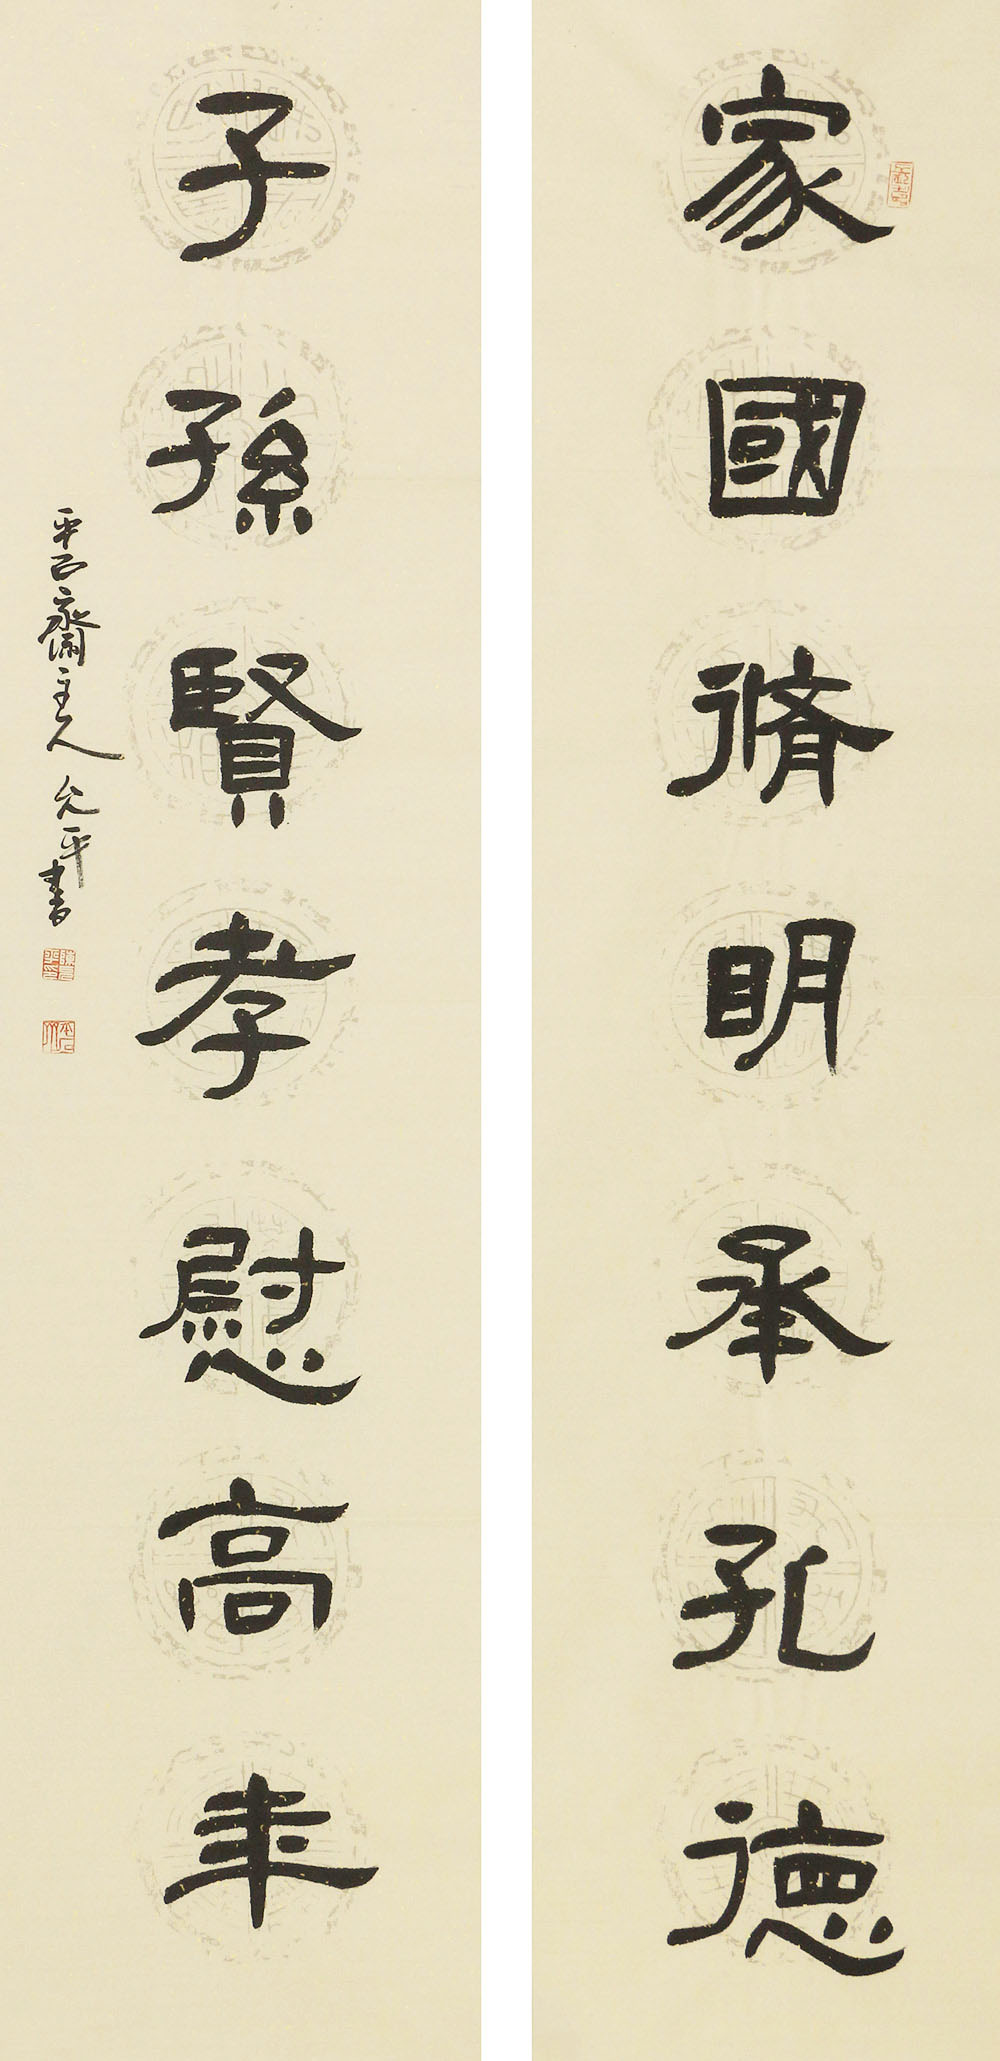 家國脩明承孔德
子孫賢孝慰高年
平石齋主人允平書